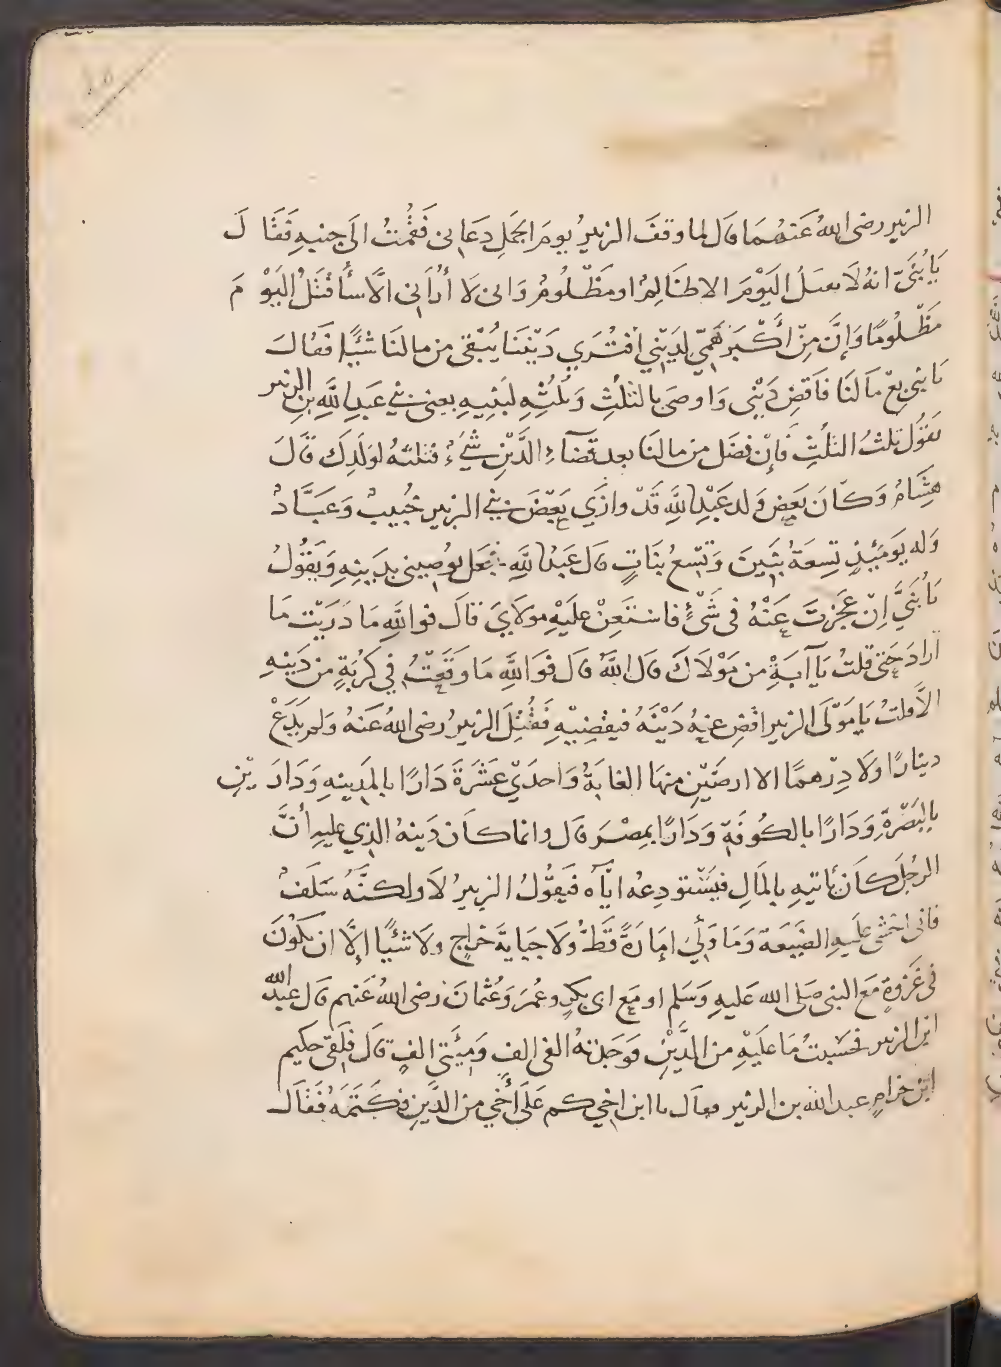 ١٥
الزبير رضى الله عَنهُمَا قال لما وقفَ الزبيرُ يومَ الجَمَلِ دعَانى فَقُمْتُ الىَ جنبِهِ فقَالَ
يَا بُنَيَّ انهُ لَا يقتلُ اليَوْمَ الا ظَالِمٌ او مَظْلُومٌ وَانى لَا أُرَانِى الَّا سأُقتَلُ اليَوْمَ
مَظْلُومًا وَإِنَّ مِنْ أَكْبَرِ هَمِّي لدَيْنِي افتُرَي دَيْنَنَا يُبْقى من مالنَا شَيْئًا فقَالَ
يَا بنى بِعْ مَالَنَا فَاقضِ دَيْنِى وَاوصَى بالثلُثِ وَثُلُثِهِ لبَنِيهِ يعنى بَنِي عَبدِ اللَّهِ بنِ الزبير
يقوُل ثلثُ الثلُثِ فَإِنْ فضَل من مالنَا بعد قضَآءِ الدَّيْنِ شَيْءٌ فثلثهُ لوَلَدِكَ قَالَ
هِشَامٌ وَكَانَ بَعضُ وَلد عَبْدِ اللَّهِ قَدْ وازَي بَعْضَ بَنِي الزبير خُبيبٌ وَعَبَّادٌ
وَله يَومَئِذٍ تِسعَةُ بَنِينَ وَتِسْعُ بنَاتٍ قال عَبدُ اللَّهِ فجَعل يُوصِينى بدَينِهِ وَيَقُولُ
يَا بُنَيَّ اِنْ عَجَزتَ عَنْهُ فى شَىْءٍ فاستَعِنْ عليَهْ مولَايَ قالَ فوَاللَّهِ مَا دَرَيْت مَا
ارَادَ حَتى قلتُ يَا آبَةِ من مَوْلَاكَ قال اللَّهُ قال فوَاللَّهِ مَا وَقَعْتُ فِي كُرْبَةٍ من دَينِهِ
الَّا قلتُ يَا مَوْلَى الزبير اقضِ عنهُ دَيْنَهُ فيقضِيهِ فَقُتِلَ الزبيرُ رضى اللهُ عَنهُ ولم يَدَعْ
دينارًا ولَا دِرْهمًا الا ارضَيْنِ منهَا الغابَةُ وَاحدَيْ عَشَرَةَ دَارًا بالمَدِينهِ وَدَارَيْنِ
بالبَصْرَةِ وَدَارًا بالكُوفَةِ وَدَارًا بمِصْرَ قال وانما كَان دَينهُ الذِي عليهِ أنَّ
الرجُلَ كانَ يَاتيهِ بالمَالِ فيَسْتودِعُه ايَّاه فَيَقُولُ الزبيرُ لَا ولكنَّهُ سَلَفٌ
فانى اخشى علَيهِ الضَيعَةَ وَمَا وَلِيَ اِمَارَةً قَطُّ وَلَا جبَايةَ خراجٍ ولا شَيْئًا إلَّا ان يكُونَ
فى غَزوَةٍ مَع النبى صَلى الله عَليهِ وَسَلم او مَع ابى بَكرٍ وعُمَرَ وَعُثمانَ رضى اللهُ عَنهم قال عبد الله
ابن الزبير فحسَبتُ مَا علَيْهِ من الدَّيْنِ فوَجدْتهُ الفى الفٍ وَمِئَتى الفٍ قالَ فلَقِىَ حكيم
ابن حزامٍ عبد الله بن الزبير فقال يا ابن اخِي كم عَلَى أَخِي من الدَّيْنِ فكَتَمَهُ فقَالَ